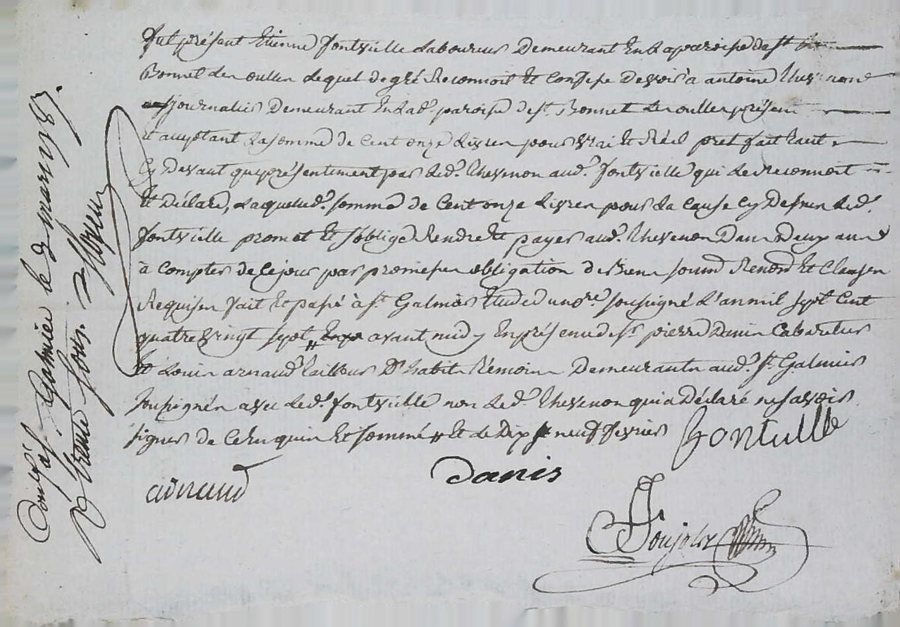 fut présent Etienne fontvielle Laboureur Demeurant En La paroisse de st
Bonnet Les oulles Lequel de gré Reconnoit Et Confesse Devoir à antoine thevenon
journalier Demeurant En Lad. paroisse de st. Bonnet Les oulles présent
Et acceptant La somme de Cent onze Livres pour vrai Et Réel pret fait tant
Cy Devant que présentement par Led. thevenon aud. fontvielle qui Le reconnoit
Et Déclare, Laquelle d. somme de Cent onze Livres pour La Cause Cy Dessus Led.
fontvielle promet Et s'oblige Rendre Et payer aud. thevenon Dans Deux ans
à Compter de Ce jour par promesse obligation de Biens soumd Renond Et Clauses
Requises fait Et passé à st Galmier Etude du nre soussigné L'an mil sept Cent
quatre vingt sept avant midy En présence de sr. pierre Danis Cabaretier
Et Louis arnaud tailleur D'habits témoins Demeurants aud. st. Galmier
soussignés avec Led. fontvielle non Led. thevenon qui a Déclaré ne savoir
signer de Ce Enquis Et sommé Et Le Dix neuf fevrier
fontvielle
arnaud
Danis
Controlé à st. Galmier le 3 mars 1787.
R. trente sous.